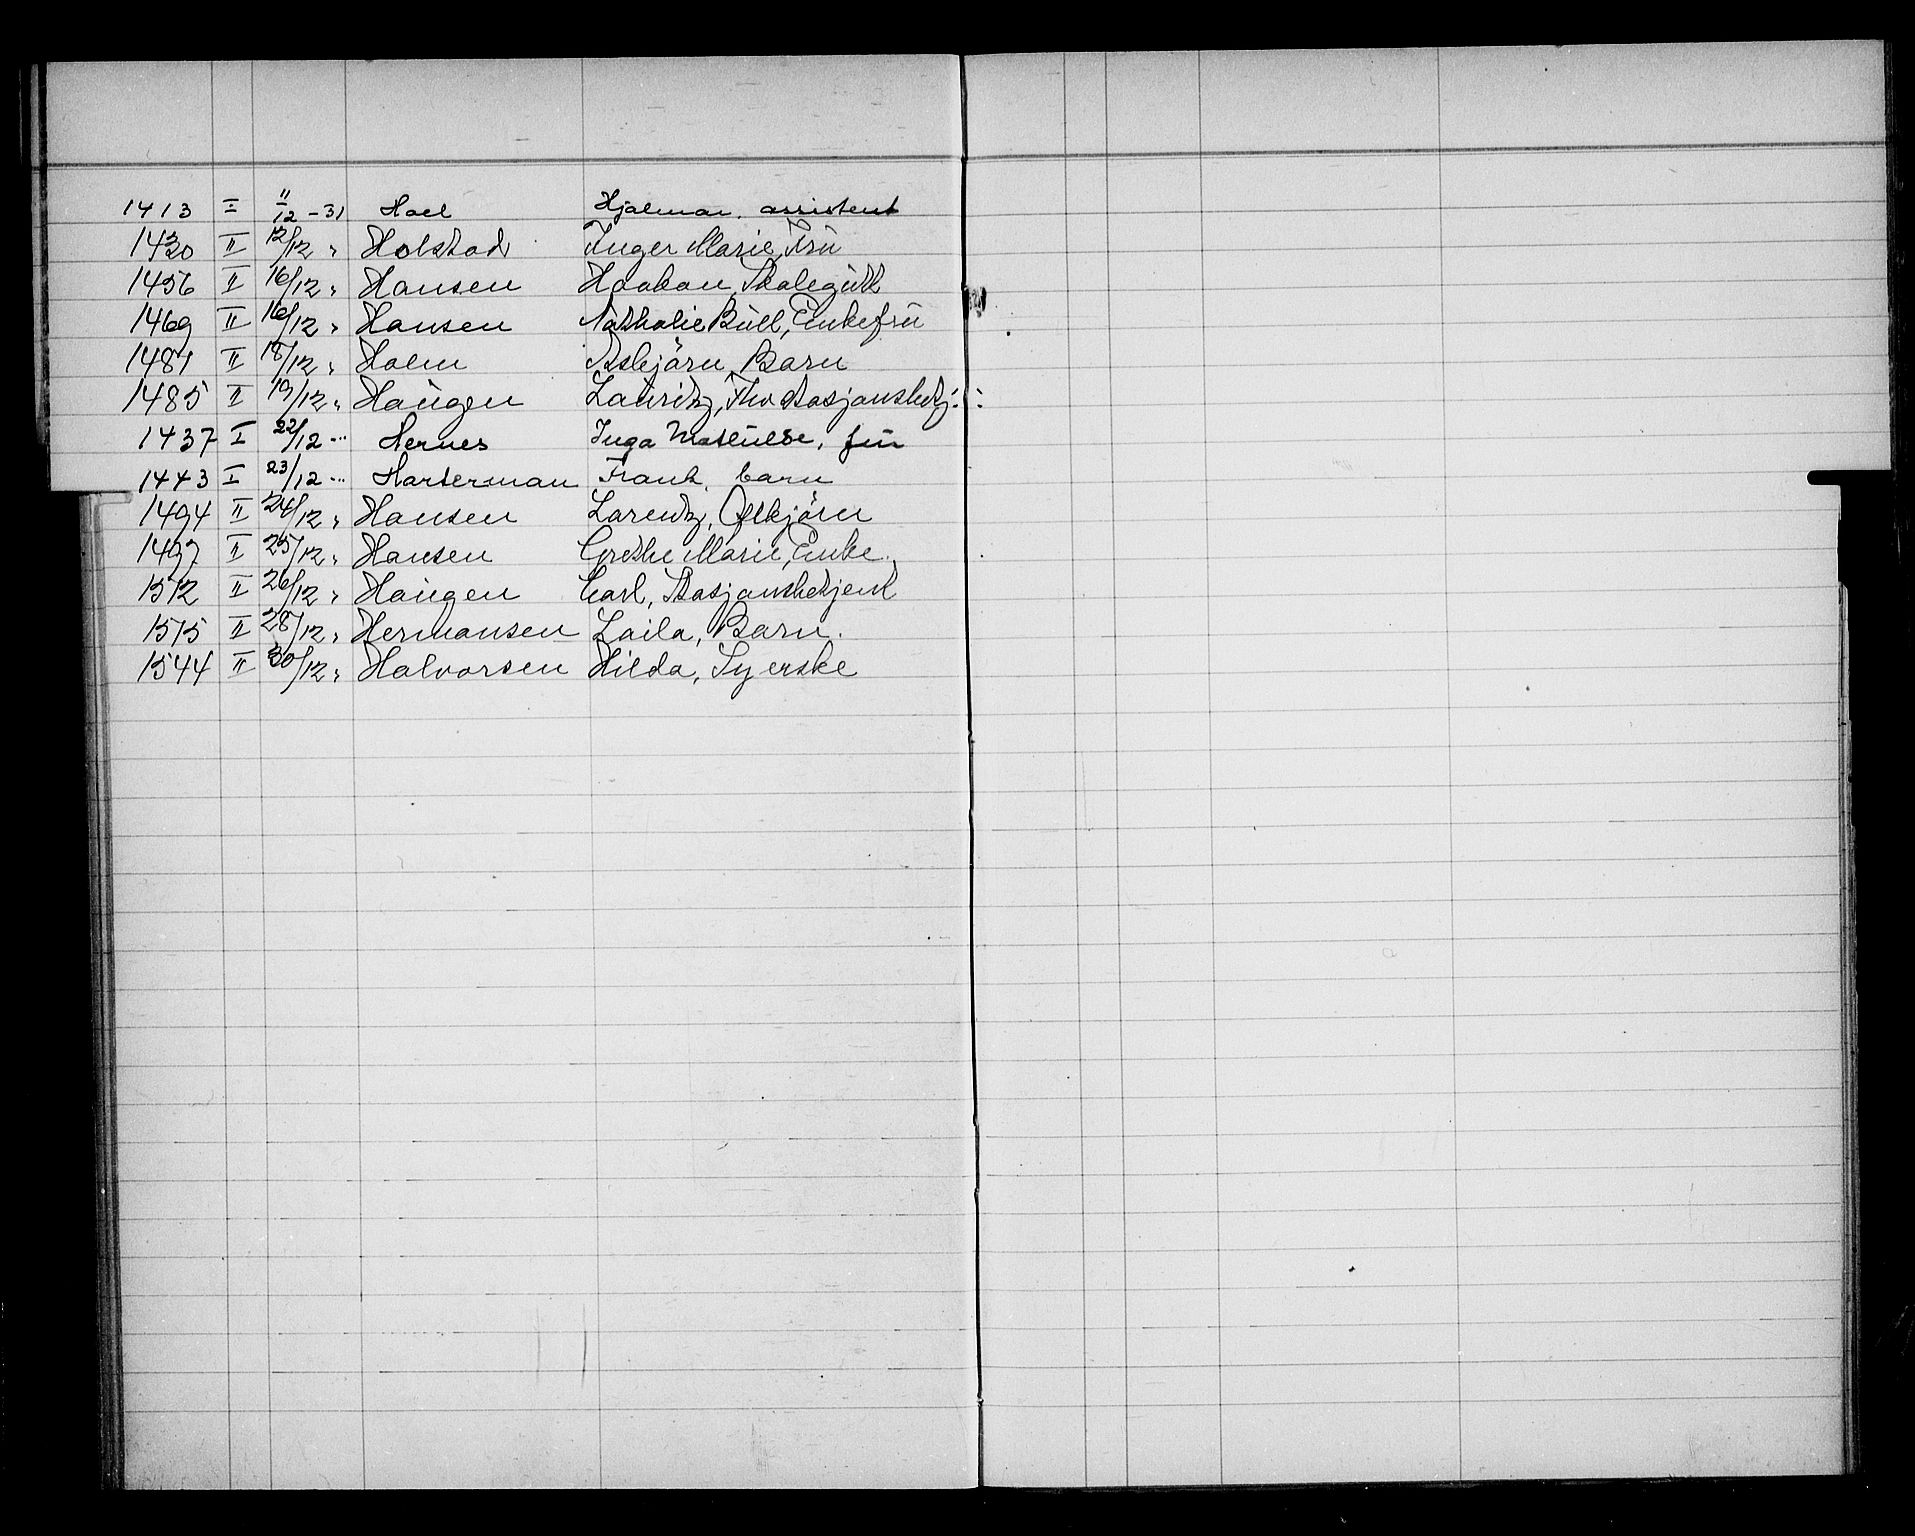 1413 I 11/12 -31 Hoel Hjalmar, assistent
1430 II 12/12 " Holstad Inger Marie, Fru
1456 II 16/12 " Hansen Haakon, Skolegutt
1469 II 16/12 " Hansen Nathalie Bull, Enkefru
1481 II 18/12 " Holm Asbjörn, Barn
1485 II 19/12 " Haugen Lauritz, Fhv Stasjonsbetj.:
1437 I 22/12 ... Hernes Inga Mathilde, fru
1443 I 23/12 ... Harterman Frank, barn
1494 II 24/12 " Hansen Lorentz,
1497 II 25/12 " Hansen Grethe Marie, Enke.
1512 II 26/12 " Haugen Carl, Stasjonsbetjent
1515 II 28/12 " Hermansen Laila, Barn.
1544 II 30/12 " Halvorsen Hilda, Syerske